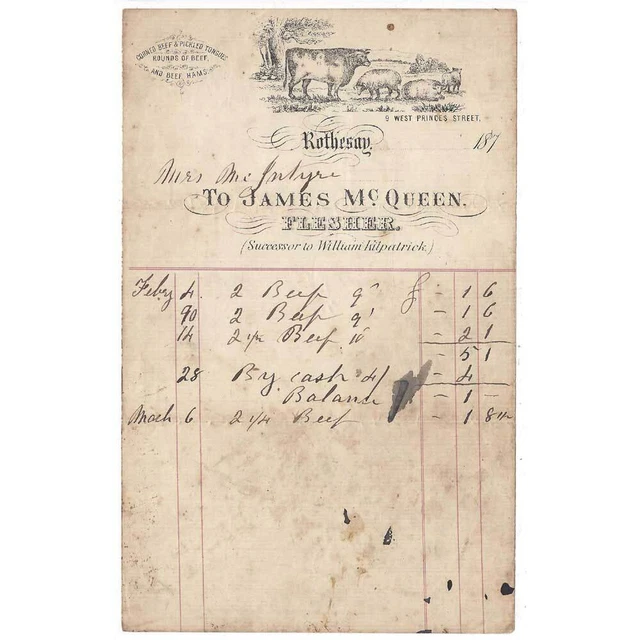 CORNED BEEF & PICKLED TONGUES
ROUNDS OF BEEF,
AND BEEF HAMS.
9 WEST PRINCES STREET,
Rothesay, 187
Mrs McIntyre
To JAMES Mc QUEEN.
FLESHER.
(Successor to William Kilpatrick.)
Febry 4. 2 Beef 9d - 1 6
2 Beef 9d - 1 6
14 2 1/2 Beef 10 - 2 1
- 5 1
28 By cash 4/ - 4
Balance - 1 -
Mach 6 2 1/4 Beef - 1 8